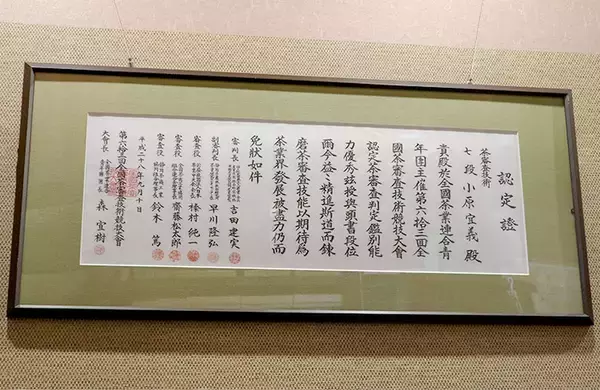 認定證
茶審査技術
七段 小原宜義 殿
貴殿於全國茶業連合青
年团主催第六拾三回全
國茶審査技術競技大會
認定茶審査判定鑑別能
力優秀玆授與頭書段位
爾今益々精進斯道而錬
磨茶審査技能以期待為
茶業界發展被盡力仍而
免狀如件
審判長
吉田建実
副審判長
早川隆弘
審査役
枝村純一
審査役
齊藤松太郎
審査役
鈴木篤
平成二十八年九月十日
第六拾三回全國茶審査技術競技大會
大會長
森宣樹